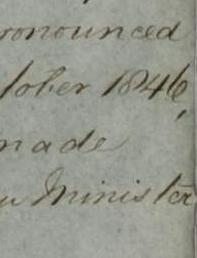 ronounced
tober 1846,
made
u Minister